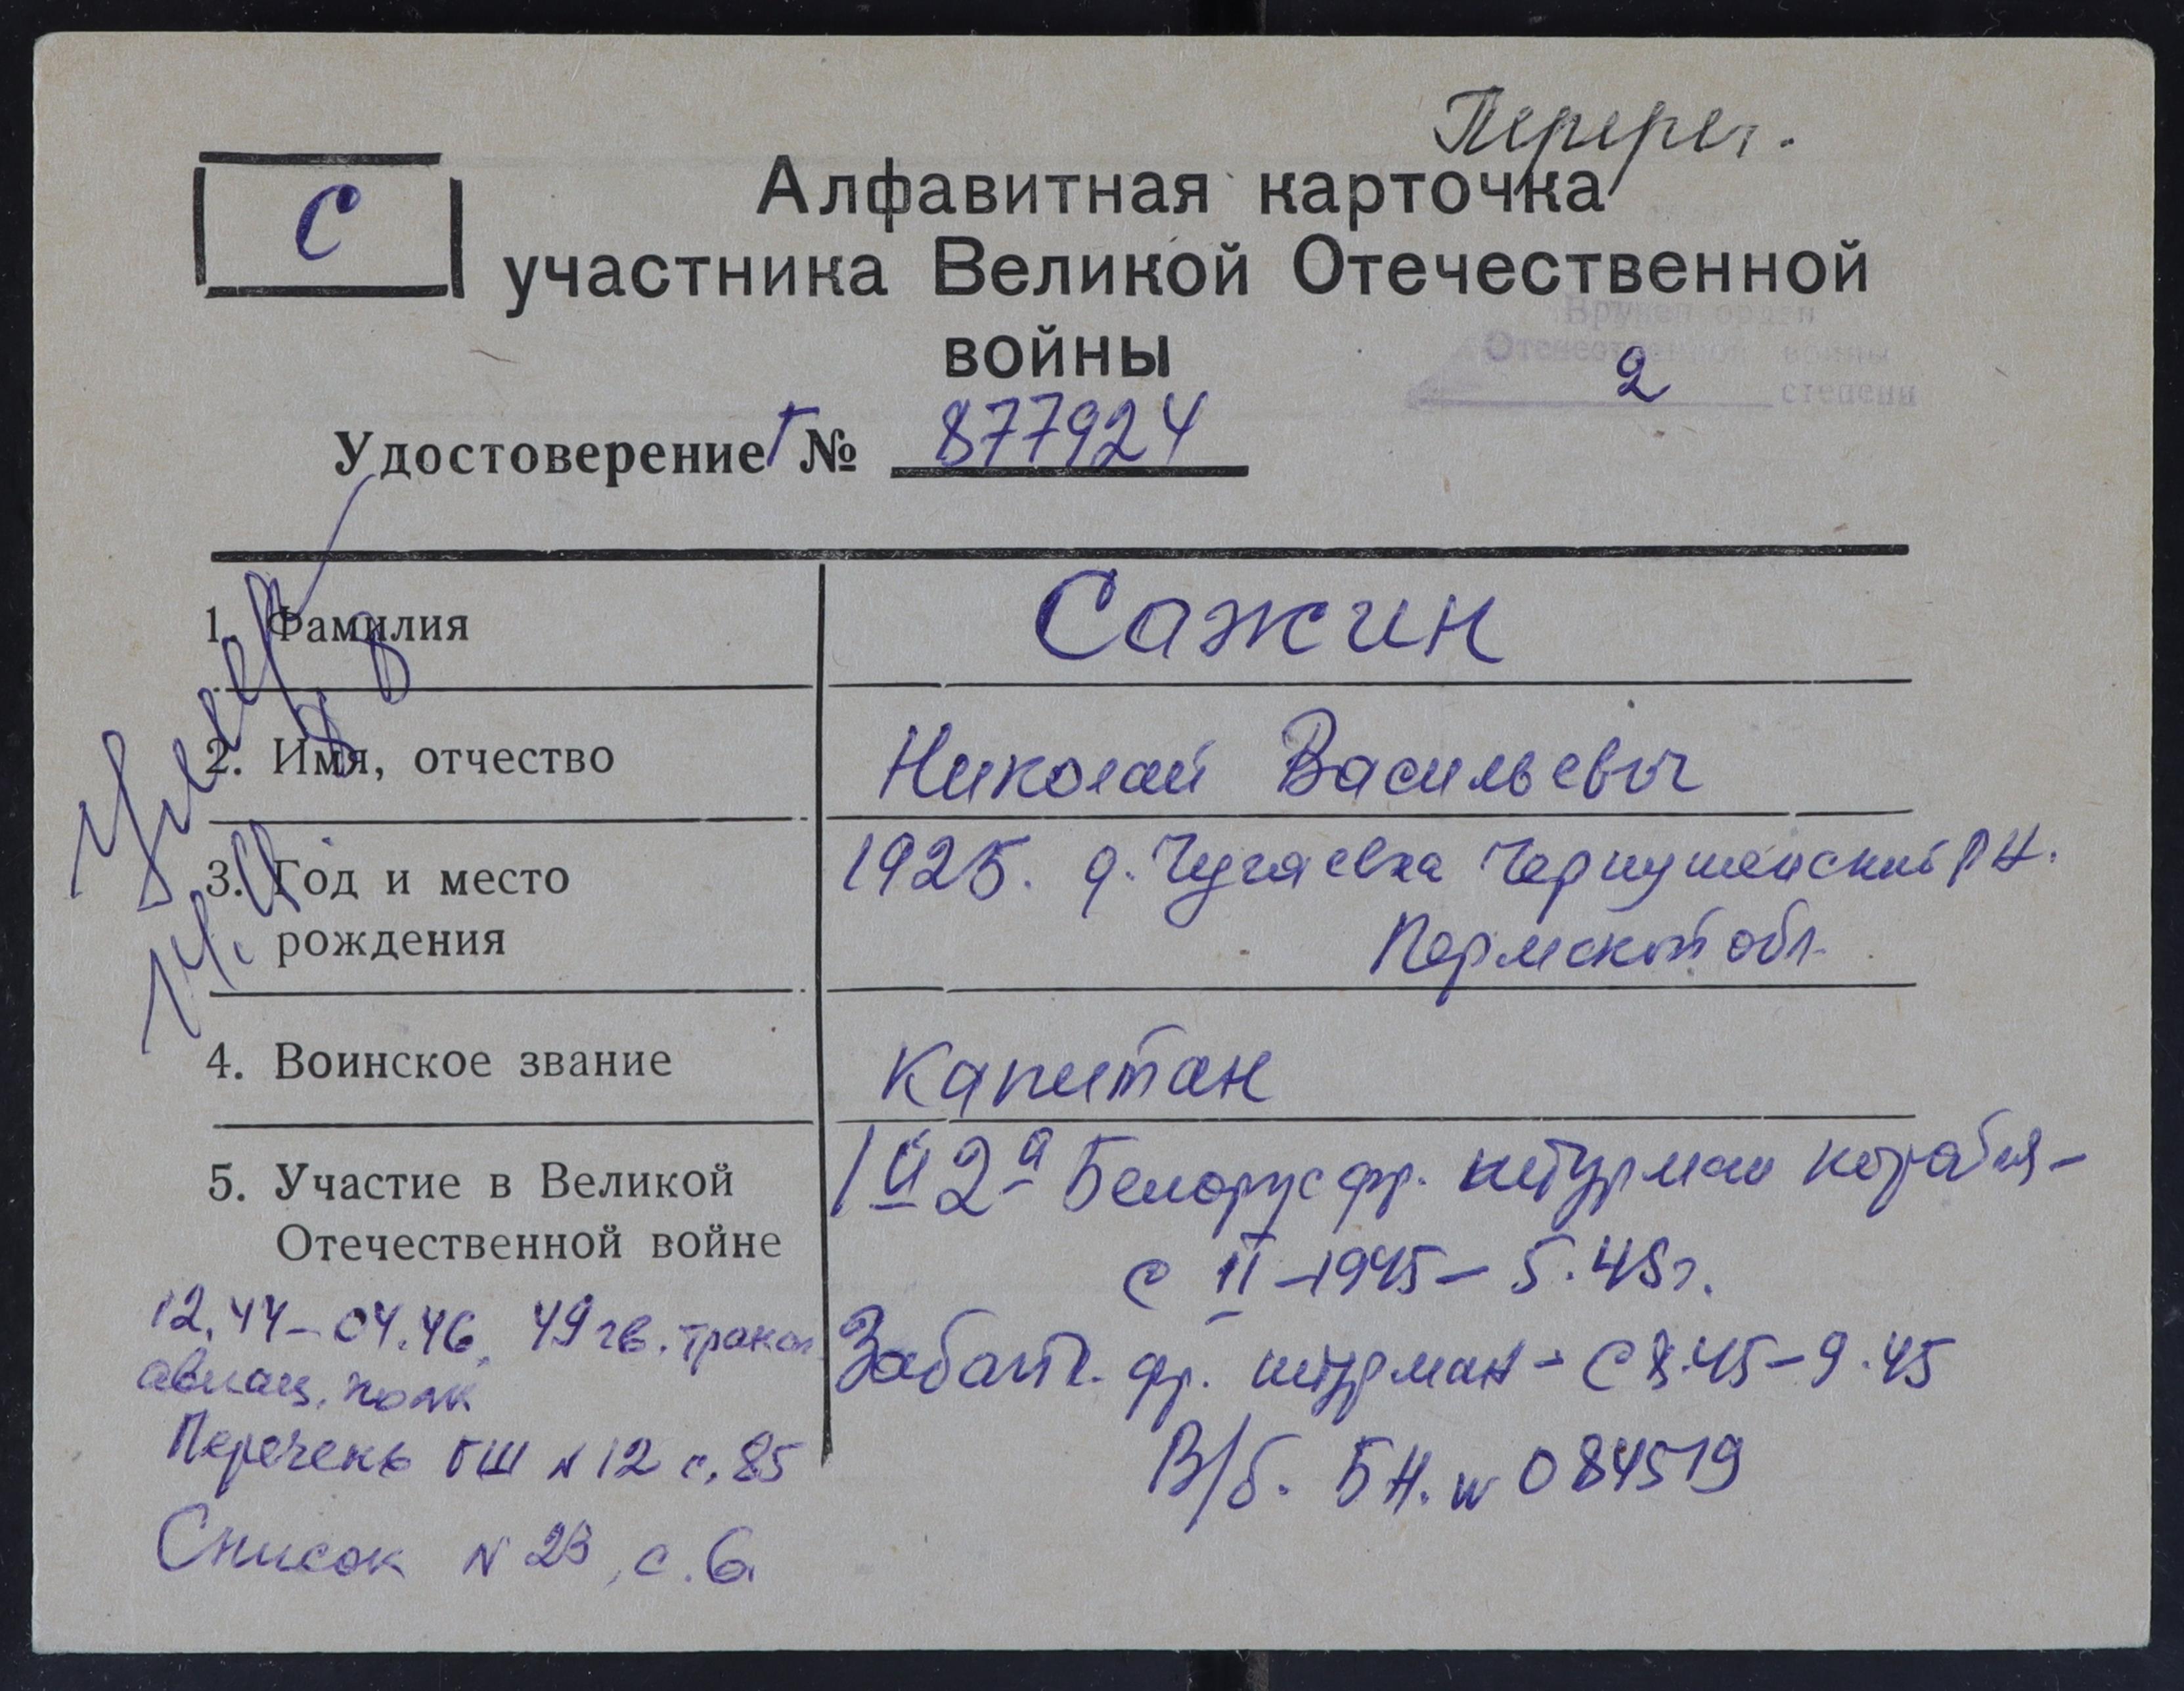 Перерег.
С
Алфавитная карточка
участника Великой Отечественной
войны
Вручен орден
Отечественной войны
2 степени
Удостоверение Г № 877924
1. Фамилия Сажин
2. Имя, отчество Николай Васильевич
3. Год и место 1925. д. Чугаевка Чернушенский р н.
рождения Пермской обл.
4. Воинское звание капитан
5. Участие в Великой 1й 2й Белорус фр. штурман корабля -
Отечественной войне с II - 1945 - 5.45г.
12.44 - 04.46, 49 гв. трансп Забайк. фр. штурман - с 8.45 - 9.45
авиац. полк
Перечень ГШ N 12 с. 85 В/б. БН. N 084519
Список N 23, с. 6.